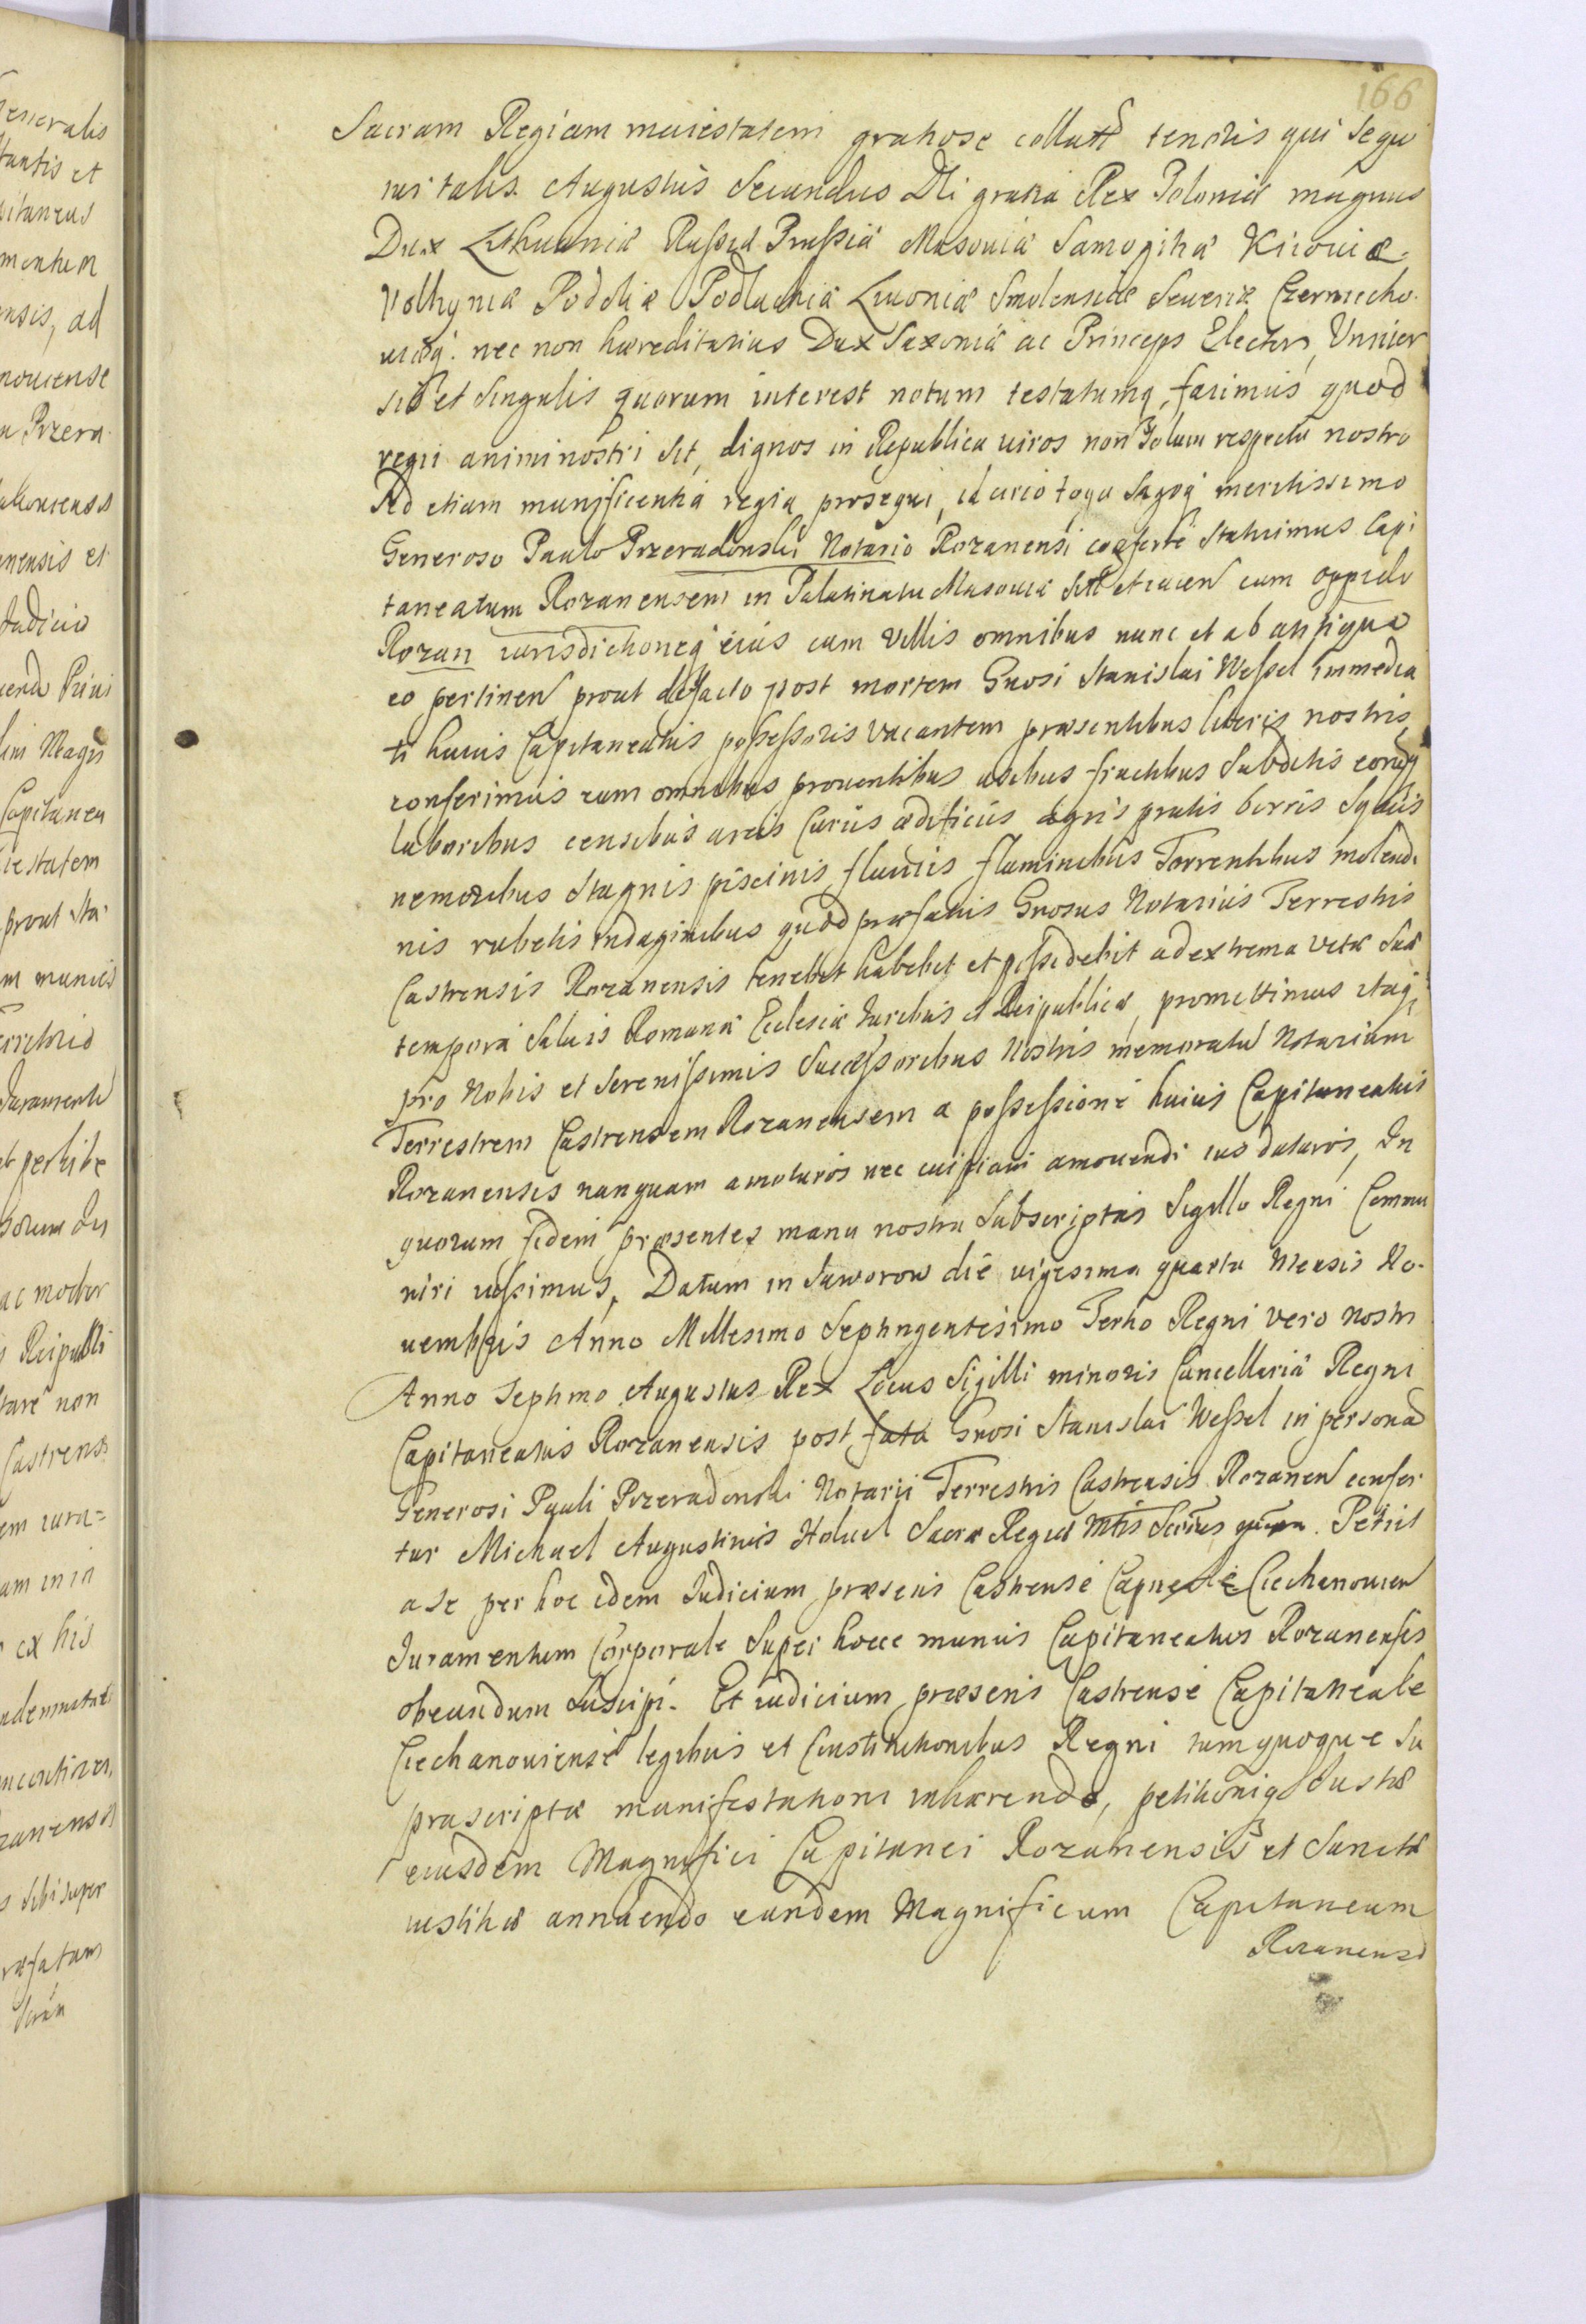 166
Sacram Regiam maiestatem gratiose collati tenoris qui sequ
tur talis. Augustus Secundus Dei gratia Rex Poloniæ magnus
Dux Lithuaniæ Russiæ Prussiæ Masoviæ Samogitiæ Kiioviæ
Volhyniæ Podoliæ Podlachiæ Livoniæ Smolensciæ Severiæ Czerniecho
viæq. nec non hæreditarius Dux Saxoniæ ac Princeps Elector, Univer
sis et Singulis quorum interest notum testatumq, facimus quod
regii animi nostri sit, dignos in Republica viros non solum respectu nostro
sed etiam munificentia regia prosequi, id circo toga Sagoq meritissimo
Generoso Paulo Przeradowski Notario Rozanensi conferre Statuimus Capi
taneatum Rozanensem in Palatinatu Masoviæ sitt et iacen cum oppido
Rozan iurisdictioneq eius cum Villis omnibus nunc et ab antiquo
eo pertinen prout de facto post mortem Gnosi Stanislai Wessel immedia
ti huius Capitaneatus possessoris vacantem præsentibus literis nostris
conferimus cum omnibus proventibus usibus fructibus Subditis eorumq
laboribus censibus areis Curiis ædificiis agris pratis borris Sylvis
nemoribus Stagnis piscinis fluviis fluminibus Torrentibus molendi
nis rubetis indaginibus quod præfatus Gnosus Notarius Terrestris
Castrensis Rozanensis tenebit habebit et possidebit ad extrema vitæ suæ
tempora Salvis Romanæ Ecclesiæ Iuribus et Reipublicæ, promittimus itaq
pro Nobis et Serenissimis Successoribus Nostris memoratu Notarium
Terrestrem Castrensem Rozanensem a possessione huius Capitaneatus
Rozanensis nunquam amoturos nec cuipiam amovendi ius daturos, In
quorum fidem præsentes manu nostra Subscriptas Sigillo Regni Commu
niri iussimus, Datum in Jaworow die vigesima quarta Mensis No-
vembris Anno Millesimo Septingentesimo Tertio Regni vero nostri
Anno Septimo Augustus Rex Locus Sigilli minoris Cancellariæ Regni
Capitaneatus Rozanensis post fata Gnosi Stanislai Wessel in personam
Generosi Pauli Przeradowski Notarii Terrestris Castrensis Rozanen confer
tur Michael Augustinus Holuel Sacræ Regiæ Mtis Petiit
a se per hoc idem Iudicium præsens Castrense Capneale Ciechanovien
Iuramentum Corporale Super hocce munus Capitaneatus Rozanensis
obeundum suscipi. Et iudicium præsens Castrense Capitaneale
Ciechanoviense legibus et Constitutionibus Regni tum quoque Su
prascriptæ manifestationi inhærendo, petitioniq Iustæ
eiusdem Magnifici Capitanei Rozanensis et Sanctæ
iustitiæ annuendo eundem Magnificum Capitaneum
Rozanense